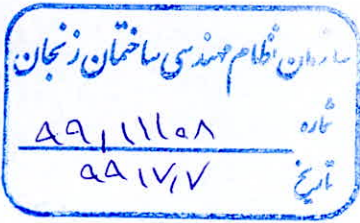 سازمان نظام مهندسی ساختمان زنجان
شماره ۹۹/۱۱۱۰۸
تاریخ ۹۹/۷/۷